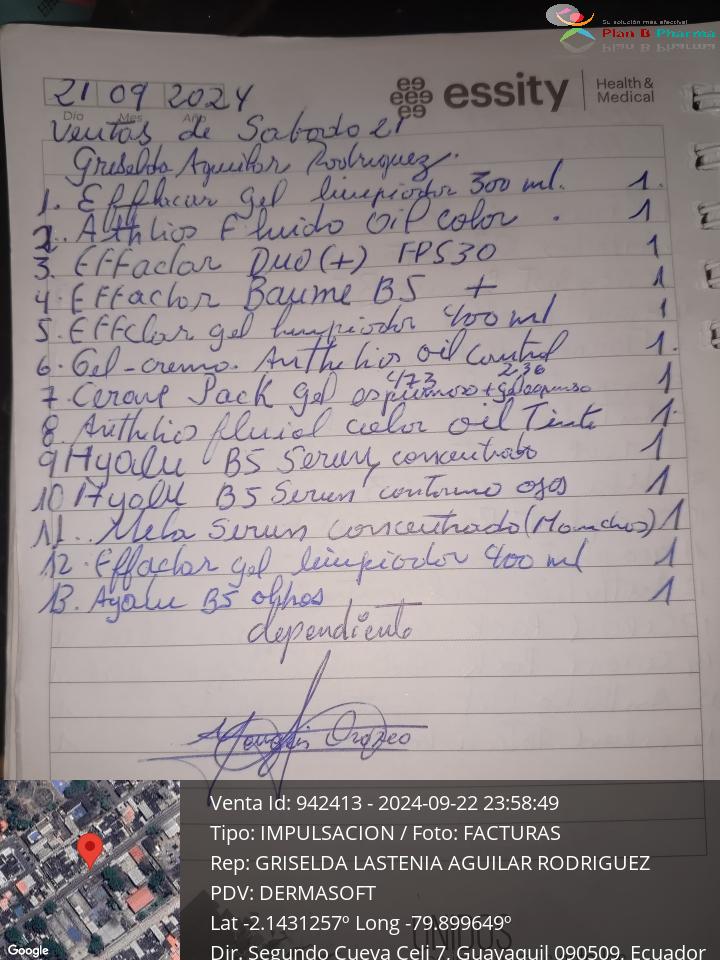 Su solución más efectiva!
Plan B Pharma
21 09 2024
Día Mes Año
essity
Health &
Medical
Ventas de Sabado 21
Griselda Aguilar Rodriguez.
1. Efflacar gel limpiador 300 ml. 1.
2.. Athlios Fluido Oil color . 1
3. Effaclar Duo(+) FPS30 1
4. Effaclor Baume B5 + 1
5. Effclar gel limpiador 400 ml 1
6. Gel-crema. Anthelios oil control 1.
7. Cerave Pack gel espumoso 473 + gel espumoso 236 1
8. Anthelios fluid color oil Tinte 1.
9 Hyalu B5 Serum concentrado 1
10 Hyalu B5 Serum contorno ojos 1
11.. Mela Serum concentrado (Manchas) 1
12. Effaclar gel limpiador 400 ml 1
13. Ayalu B5 ohhos 1
dependiente
Orozco
Venta Id: 942413 - 2024-09-22 23:58:49
Tipo: IMPULSACION / Foto: FACTURAS
Rep: GRISELDA LASTENIA AGUILAR RODRIGUEZ
PDV: DERMASOFT
Lat -2.1431257º Long -79.899649º
Dir. Segundo Cueva Celi 7, Guayaquil 090509, Ecuador
Google